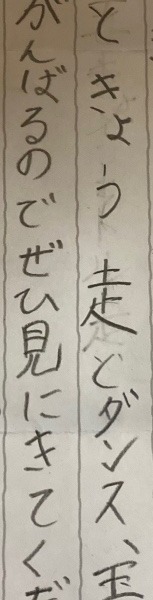 ときょう走とダンス、玉
がんばるのでぜひ見にきてくだ